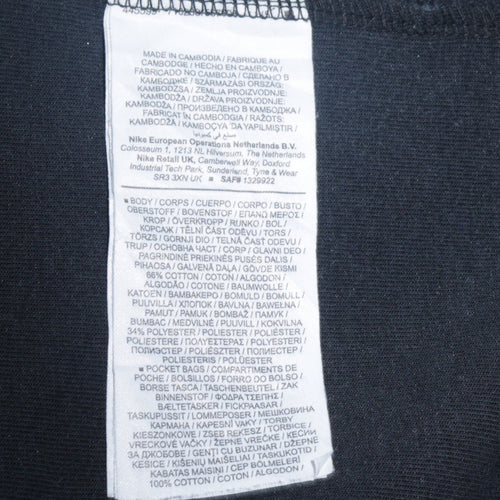 MADE IN CAMBODIA / FABRIQUE AU
CAMBODGE / HECHO EN CAMBOYA /
FABRICADO NO CAMBOJA / СДЕЛАНО В
КАМБОДЖЕ / SZÁRMAZÁSI ORSZÁG:
KAMBODZSA / ZEMLJA PROIZVODNJE:
KAMBODŽA / DRŽAVA PROIZVODNJE:
KAMBODŽA / ПРОИЗВЕДЕНО В КАМБОДЖА /
FABRICAT ÎN CAMBODGIA / RAŽOTS:
KAMBODŽĀ / KAMBOÇYA DA YAPILMIŞTIR /
صنع في كمبوديا
Nike European Operations Netherlands B.V.
Colosseum 1, 1213 NL Hilversum, The Netherlands
Nike Retail UK, Camberwell Way, Doxford
Industrial Tech Park, Sunderland, Tyne & Wear
SR3 3XN UK ■ SAF# 1329922
■ BODY / CORPS / CUERPO / CORPO / BUSTO /
OBERSTOFF / BOVENSTOF / ΕΠΑΝΩ ΜΕΡΟΣ /
KROP / ÖVERKROPP / RUNKO / BOL /
КОРСАЖ / TĚLNÍ ČÁST ODĚVU / TORS /
TÖRZS / GORNJI DIO / TELNÁ ČASŤ ODEVU /
TRUP / ОСНОВНА ЧАСТ / CORP / GLAVNI DEO /
PAGRINDINĖ PRIEKINĖS PUSĖS DALIS /
PIHAOSA / GALVENĀ DAĻA / GÖVDE KISMI
66% COTTON / COTON / ALGODON /
ALGODÃO / COTONE / BAUMWOLLE /
KATOEN / ΒΑΜΒΑΚΕΡΟ / BOMULD / BOMULL /
PUUVILLA / ХЛОПОК / BAVLNA / BAWEŁNA /
PAMUT / PAMUK / BOMBAŽ / ПАМУК /
BUMBAC / MEDVILNĖ / PUUVILL / KOKVILNA
34% POLYESTER / POLYESTER / POLIESTER /
POLIESTERE / ΠΟΛΥΕΣΤΕΡΑΣ / POLYESTERI /
ПОЛИЭСТЕР / POLIÉSZTER / ПОЛИЕСТЕР /
POLIESTERIS / POLÜESTER
■ POCKET BAGS / COMPARTIMENTS DE
POCHE / BOLSILLOS / FORRO DO BOLSO /
BORSE TASCA / TASCHENBEUTEL / ZAK
BINNENSTOF / ΦΟΔΡΑ ΤΣΕΠΗΣ /
BÆLTETASKER / FICKPÅSAR /
TASKUPUSSIT / LOMMEPOSER / МЕШКОВИНА
КАРМАНА / KAPESNÍ VAKY / TORBY
KIESZONKOWE / ZSEB RÉKESZ / TORBICE /
VRECKOVÉ VAČKY / ŽEPNE VREČKE / КЕСИИ
ЗА ДЖОБОВЕ / GENȚI CU BUZUNAR / DŽEPNE
KESICE / KIŠENIŲ MAIŠELIAI / TASKUKOTID /
KABATAS MAISIŅI / CEP BÖLMELERİ
100% COTTON / COTON / ALGODON /